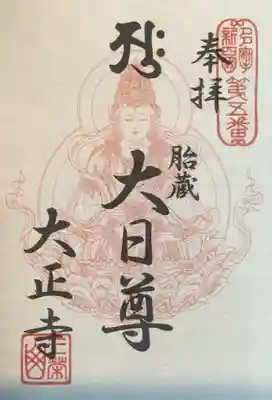 奉拝
多摩
新四国
第五番
胎蔵
大日尊
大正寺